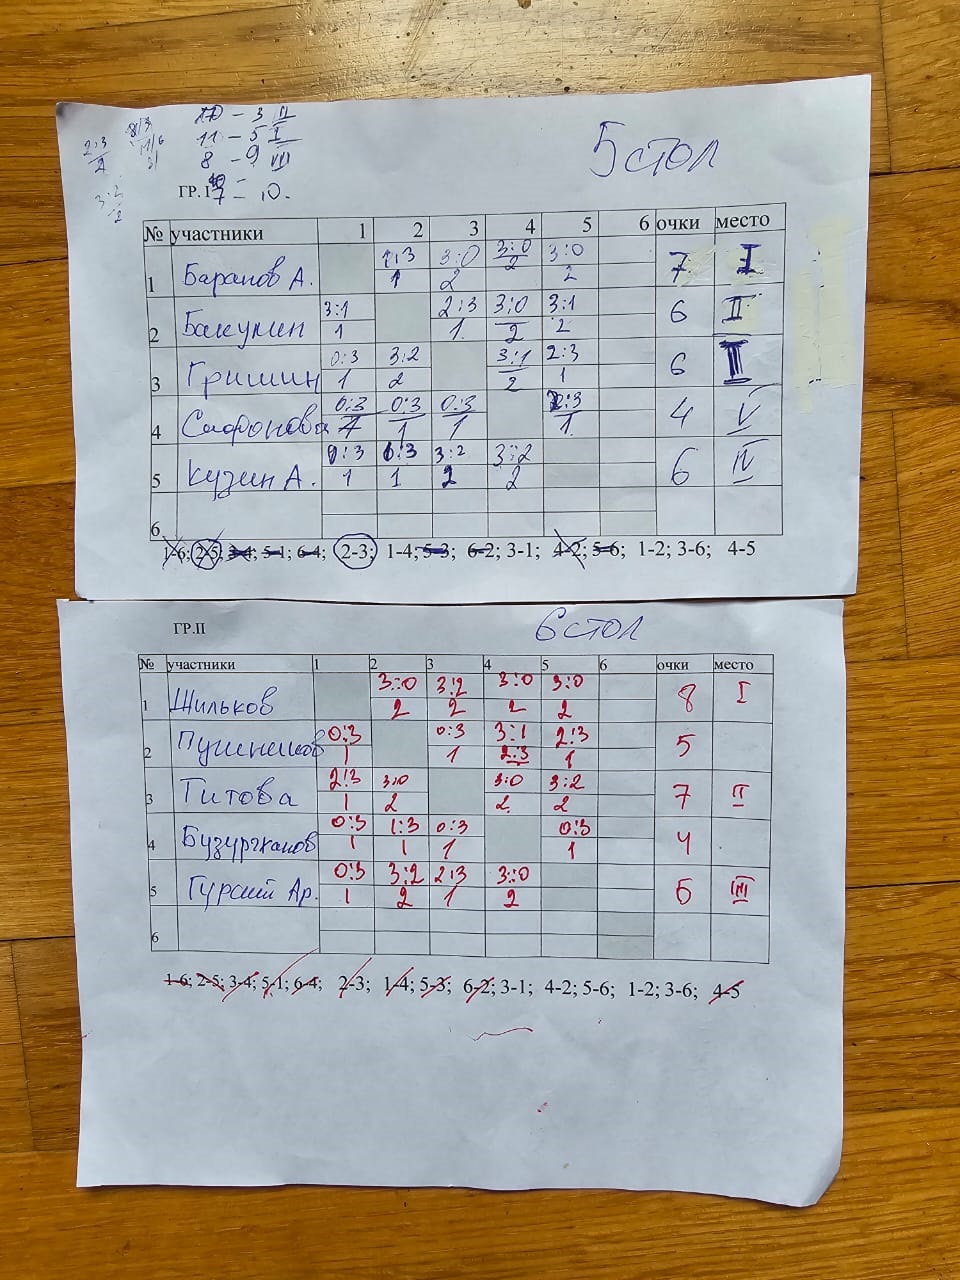 3 II
11 - 5 I
8 - 9 III
7 - 10.
2:3
3:2
5 стол
ГР. I
№ участники 1 2 3 4 5 6 очки место
1 Баранов А. 1:3 3:0 3:0 3:0 7 I
1 2 2 2
2 Бакунин 3:1 2:3 3:0 3:1 6 II
1 1 2 2
3 Гришин 0:3 3:2 3:1 2:3 6
1 2 2 1
4 Сафонова 0:3 0:3 0:3 0:3 4 V
1 1 1
5 Кузин А. 0:3 0:3 3:2 3:2 6 IV
1 1 2 2
6
1-6; 2-5; 3-4; 5-1; 6-4; 2-3; 1-4; 5-3; 6-2; 3-1; 4-2; 5-6; 1-2; 3-6; 4-5
ГР.II
6 стол
№ участники 1 2 3 4 5 6 очки место
1 Шильков 3:0 3:2 3:0 3:0 8 I
2 2 2 2
2 0:3 0:3 3:1 2:3 5
1 1 2:3 1
3 Титова 2:3 3:0 3:0 3:2 7 II
1 2 2 2
4 Бузургханов 0:3 1:3 0:3 0:3 4
1 1 1 1
5 Гурский Ар. 0:3 3:2 2:3 3:0 6 III
1 2 1 2
6
1-6; 2-5; 3-4; 5-1; 6-4; 2-3; 1-4; 5-3; 6-2; 3-1; 4-2; 5-6; 1-2; 3-6; 4-5